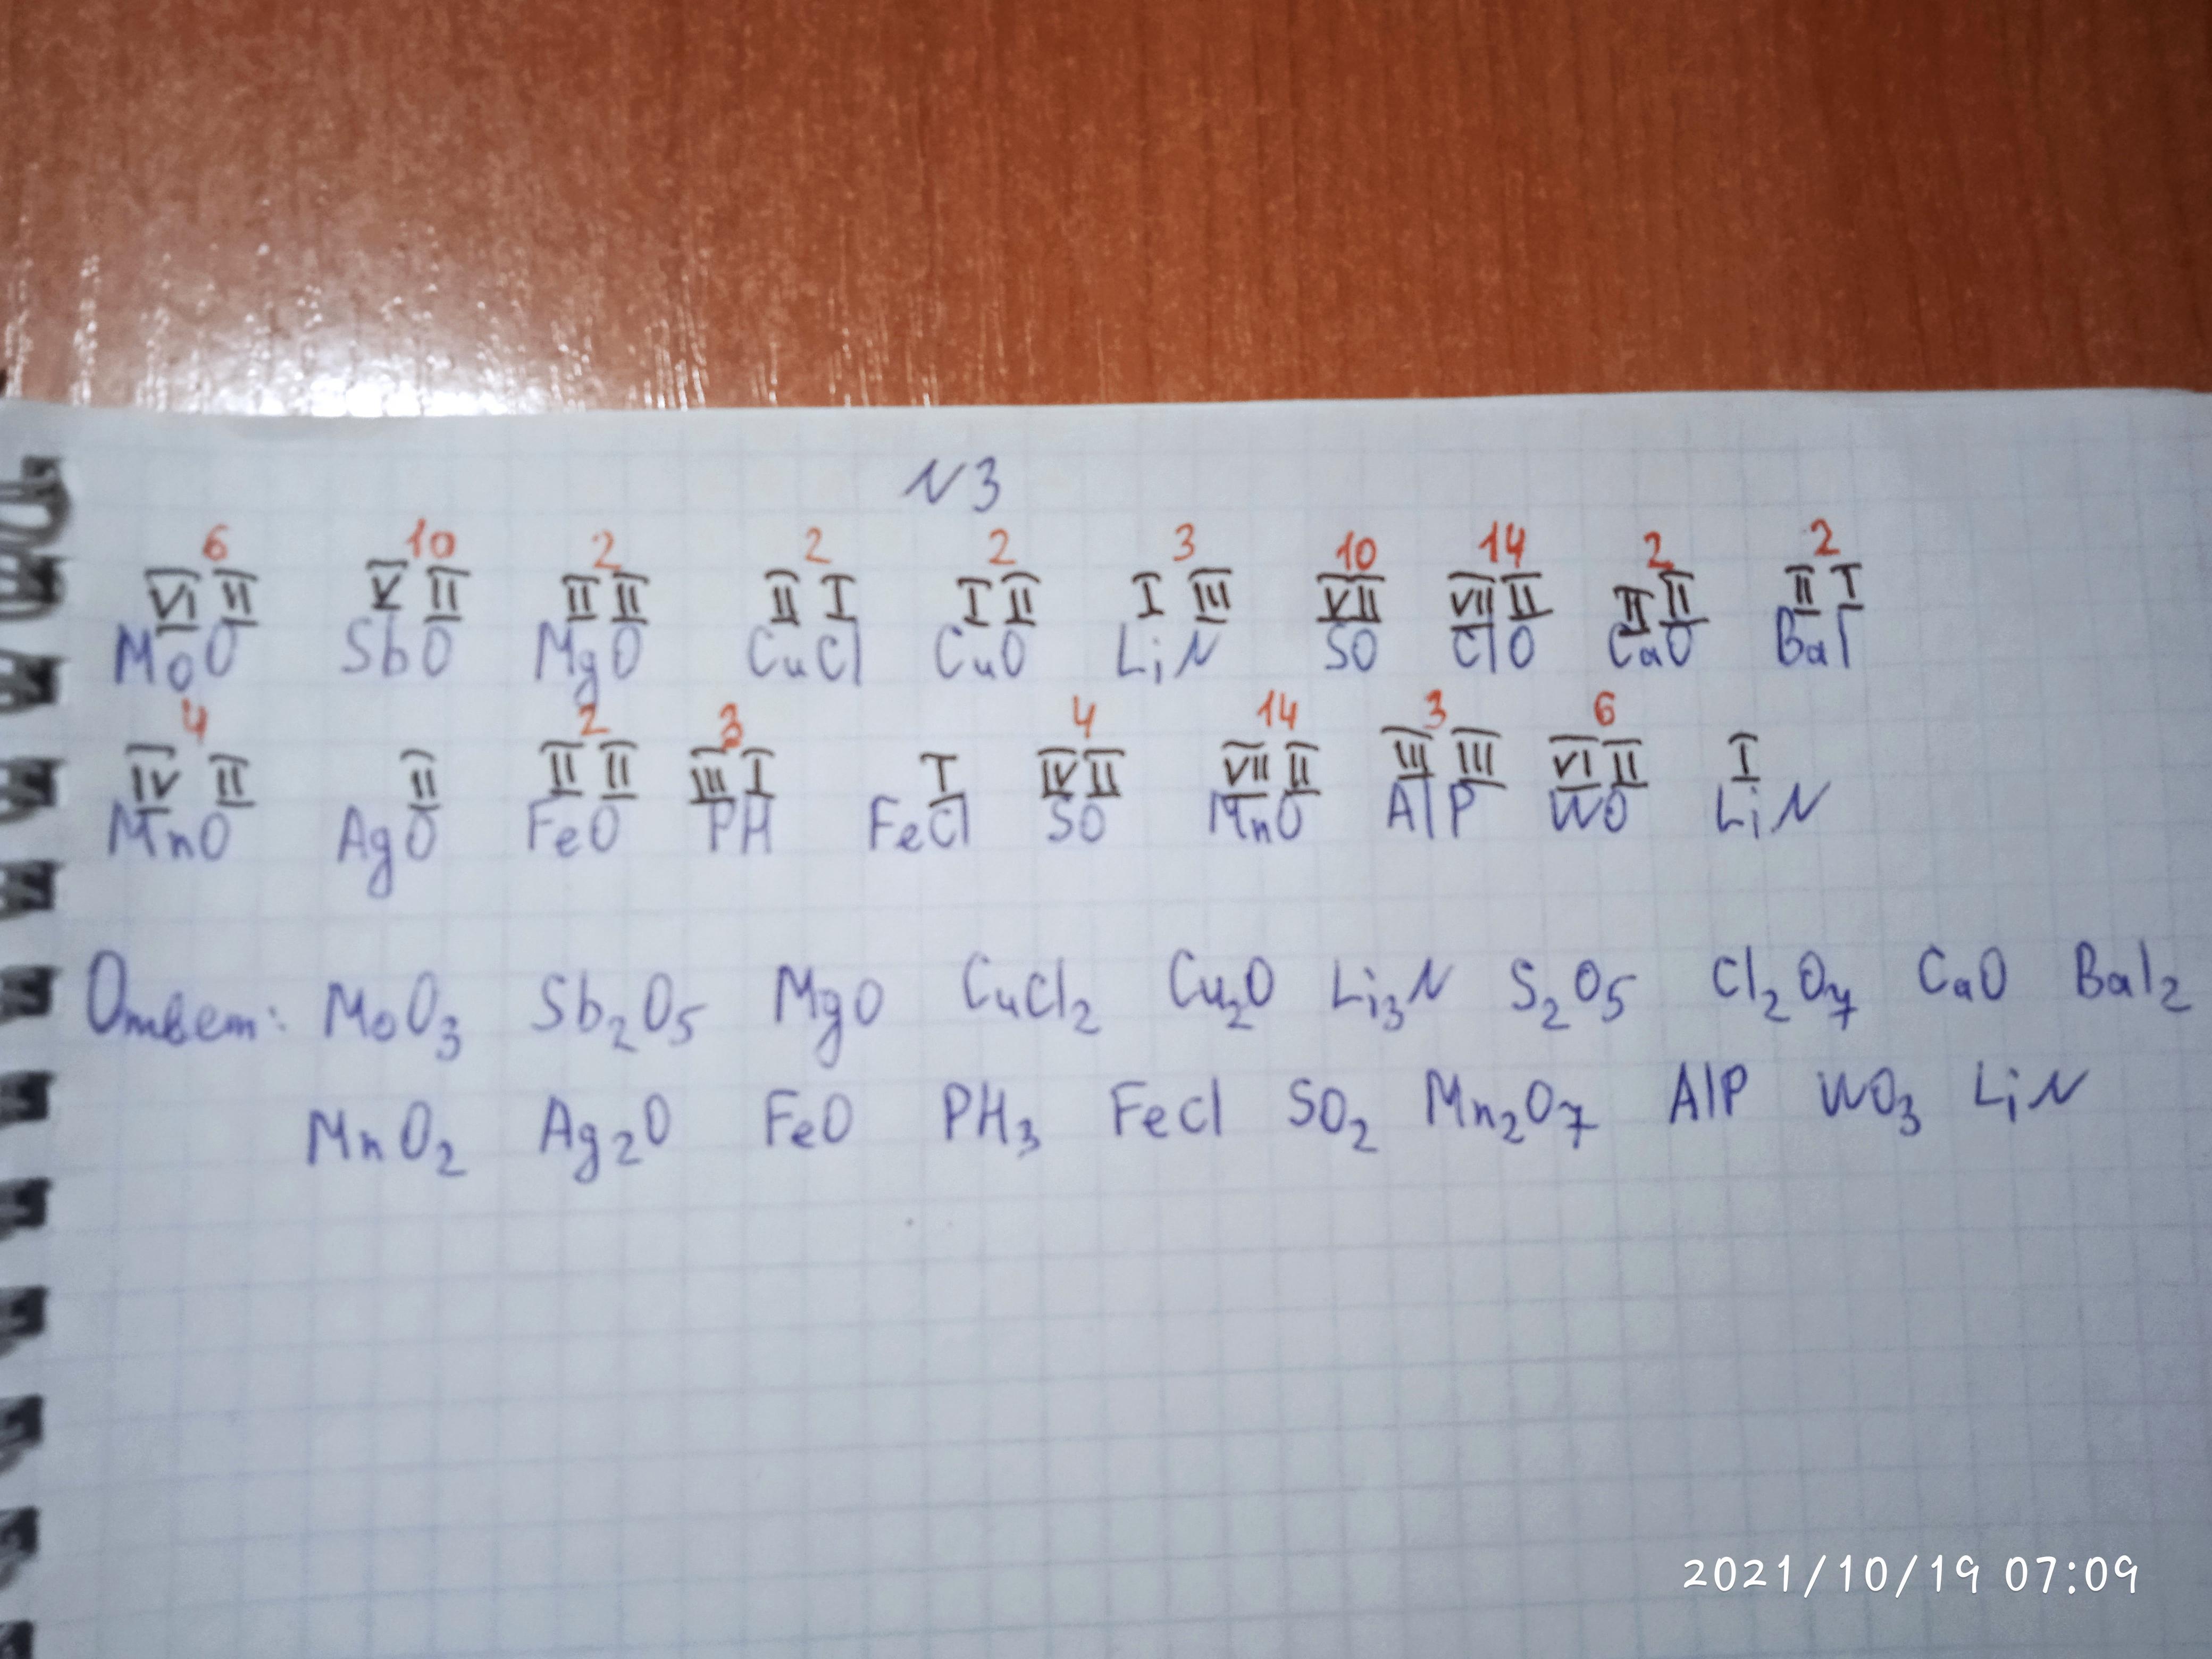 N3
6 10 2 2 2 3 10 14 2 2
VI II V II II II II I I II I III V II VII II II II II I
MoO SbO MgO CuCl CuO LiN SO ClO CaO BaI
4 2 3 4 14 3 6
IV II II II II III I I IV II VII II III III VI II I
MnO AgO FeO PH FeCl SO MnO AlP WO LiN
Ответ: MoO₃ Sb₂O₅ MgO CuCl₂ Cu₂O Li₃N S₂O₅ Cl₂O₇ CaO BaI₂
MnO₂ Ag₂O FeO PH₃ FeCl SO₂ Mn₂O₇ AlP WO₃ LiN
2021/10/19 07:09